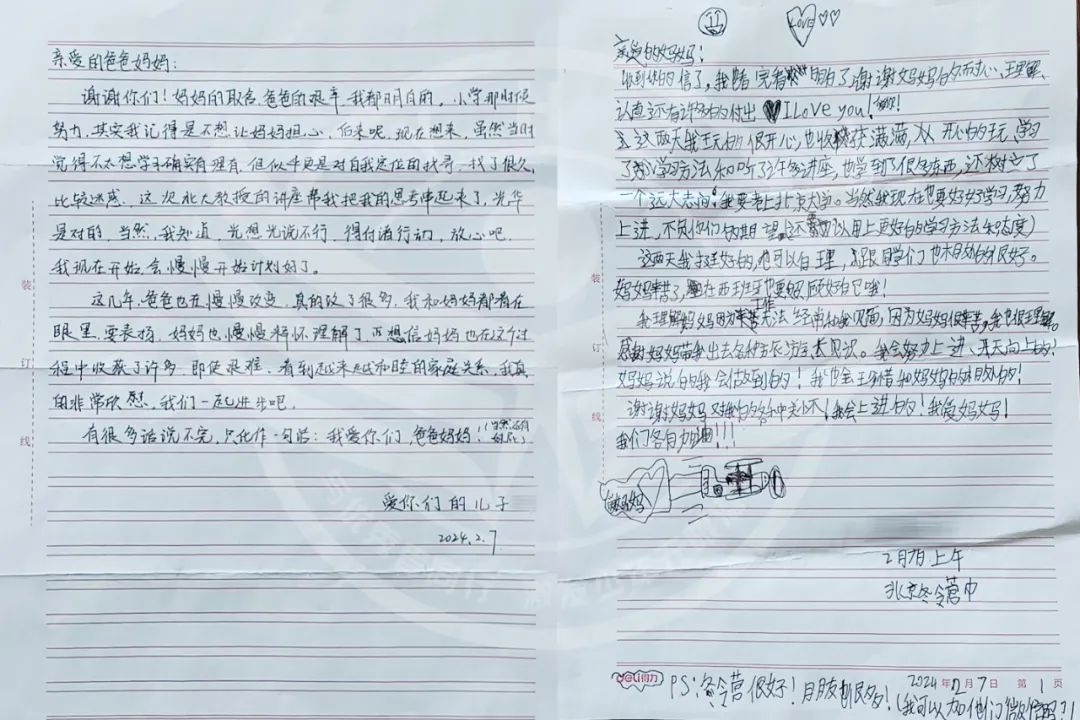 亲爱的爸爸妈妈：
谢谢你们！妈妈的取舍，爸爸的艰辛，我都明白的。小学那时候
努力，其实我记得是不想让妈妈担心，后来呢，现在想来，虽然当时
觉得不太想学确实有理有，但似乎更是对自我定位的找寻，找了很久，
比较迷惑。这次北大教授的讲座帮我把我的思考串起来了，光华
是对的，当然，我知道，光想光说不行，得付诸行动，放心吧，
我现在开始，会慢慢开始计划好了。
这几年，爸爸也在慢慢改变，真的改了很多，我和妈妈都看在
眼里，要表扬，妈妈也慢慢释怀理解了，相信妈妈也在这个过
程中收获了许多，即使艰难，看到越来越和睦的家庭关系，我真
的非常欣慰，我们一起进步吧。
有很多话说不完，只化作一句话：我爱你们，爸爸妈妈！
爱你们的儿子
2024.2.7
装
订
线
LOVE
亲爱的妈妈！
收到你的信了，我看完明白了谢谢妈妈的耐心、理解、
认真还有许多的付出 I Love you！
这两天我玩的很开心也收获满满，开心的玩、学习
了学习方法和听了许多讲座，也学到了很多东西，还树立了
一个远大志向！我要考上北京大学。当然我现在也要好好学习，努力
上进，不负你们的期望，还要用上更好的学习方法和态度）
这两天我挺好的，也可以自理，跟同学们也相处的很好。
妈妈辛苦了，在西班牙也要照顾好自己哦！
我理解妈妈因为工作无法经常和我见面，因为妈妈很辛苦，我也很理解。
感谢妈妈带我出去各种玩，长见识。我会努力上进、天天向上的！
妈妈说的我会做到的！我也会珍惜和妈妈的相处的！
谢谢妈妈对我的关怀！我会上进的！我爱妈妈！
我们各自加油！！！
2月7日上午
北京冬令营中
装
订
线
deli得力
2024年2月7日 第1页
PS：冬令营很好！朋友很多！（我可以加他们微信吗？）